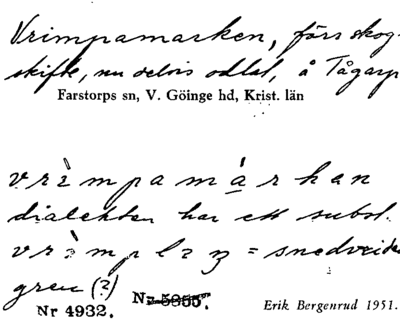 Vrimpamarken, förr skog-
skifte, nu delvis odlat, å Tågarp
Farstorps sn, V. Göinge hd, Krist. län
vrìmpamárkan
dialekten har ett subst.
snedvriden
gren (?)
Nr 4932.
Erik Bergenrud 1951.